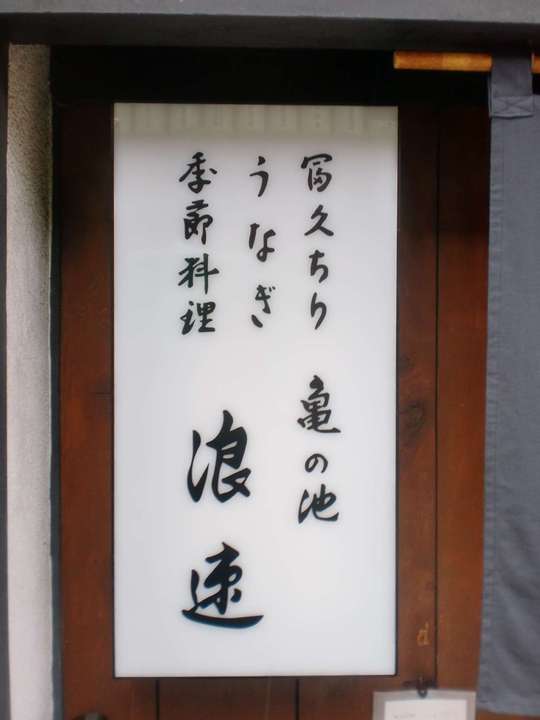 冨久ちり
うなぎ
季節料理
亀の池
浪速